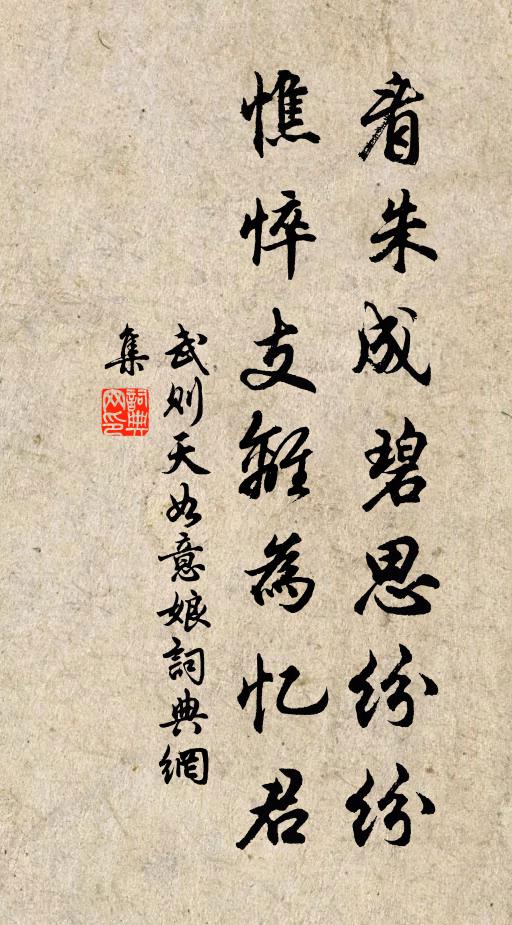 看朱成碧思纷纷
憔悴支離為忆君
武则天如意娘詞典網
集
詞典
网印